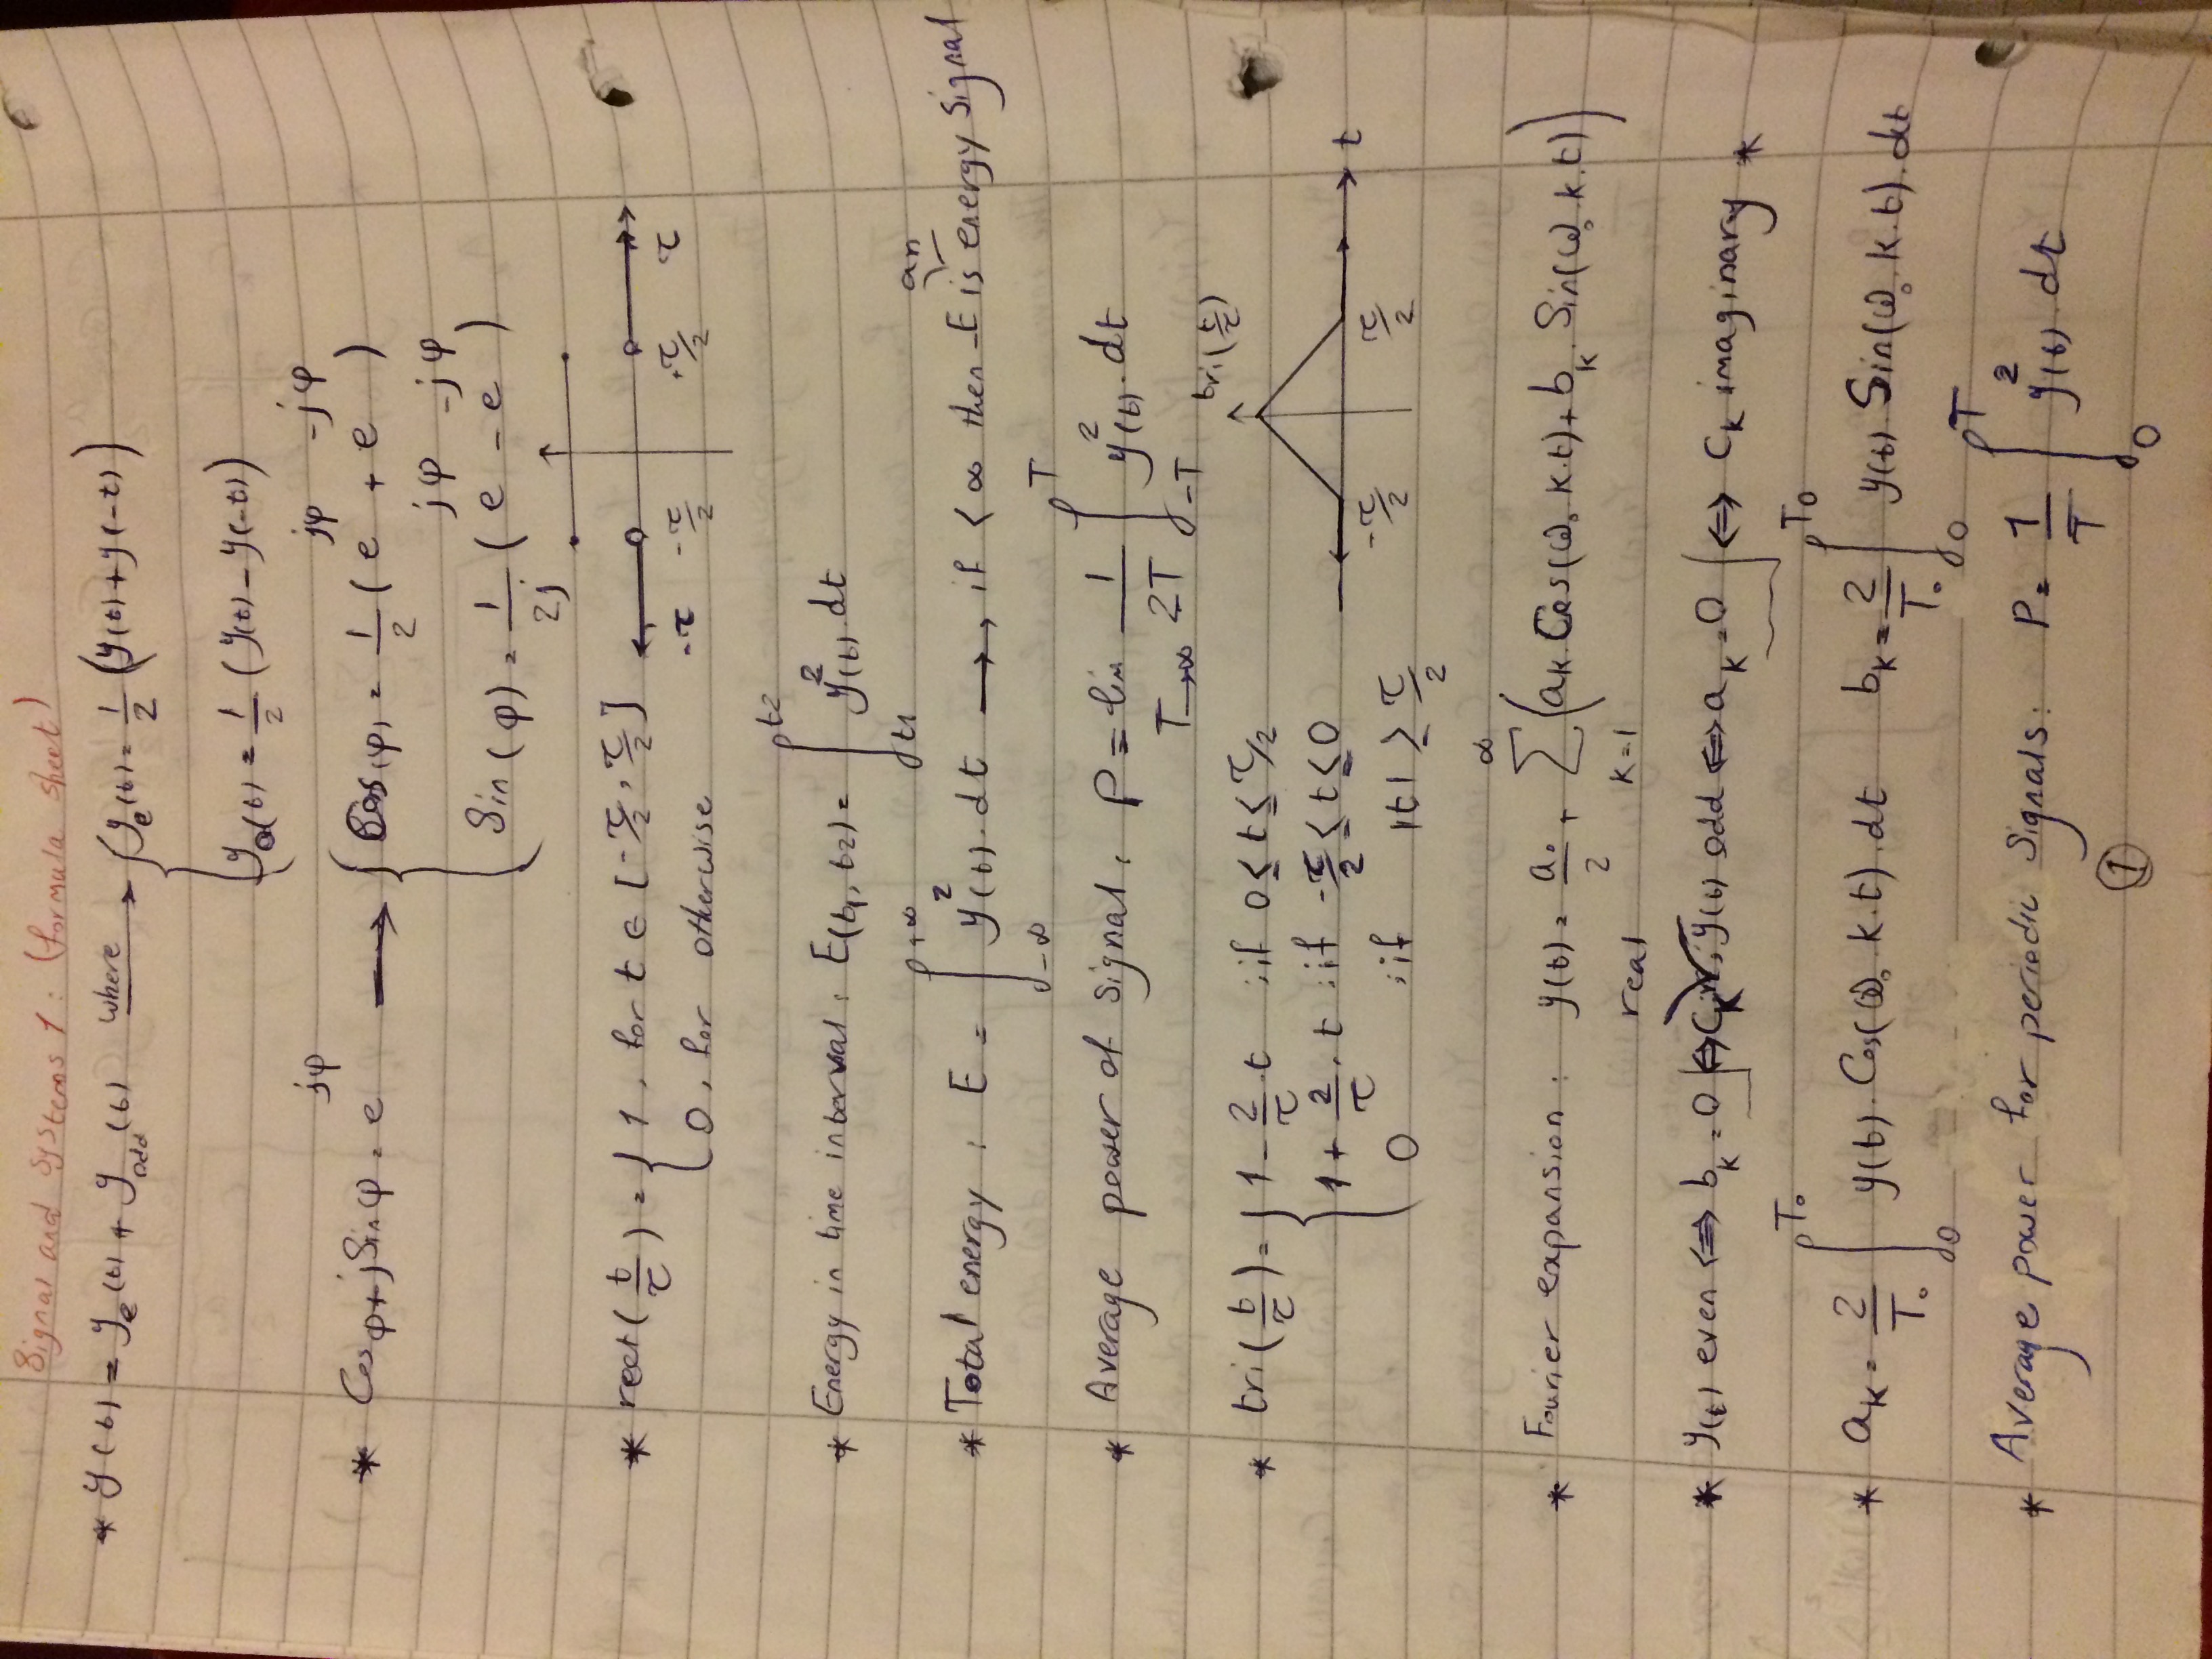 Signal and Systems 1 : (formula sheet)
* y(t) = y_e(t) + y_odd(t) where → { y_e(t) = 1/2 (y(t) + y(-t))
y_o(t) = 1/2 (y(t) - y(-t))
* Cos φ + j Sin φ = e^{jφ} → { Cos(φ) = 1/2 (e^{jφ} + e^{-jφ})
Sin(φ) = 1/2j (e^{jφ} - e^{-jφ})
* rect(t/τ) = { 1, for t ∈ [-τ/2, τ/2]
0, for otherwise
-τ -τ/2 +τ/2 τ
* Energy in time interval : E(t1, t2) = ∫_{t1}^{t2} y²(t) . dt
* Total energy : E = ∫_{-∞}^{+∞} y²(t) . dt → , if < ∞ then E is an energy signal
* Average power of signal : P = lim_{T→∞} 1/2T ∫_{-T}^{T} y²(t) . dt
* tri(t/τ) = { 1 - 2/τ . t ; if 0 ≤ t ≤ τ/2
1 + 2/τ . t ; if -τ/2 ≤ t ≤ 0
0 ; if |t| ≥ τ/2
tri(t/τ)
-τ/2 τ/2 t
* Fourier expansion : y(t) = a₀/2 + ∑_{k=1}^{∞} (a_k . Cos(ω₀ k.t) + b_k . Sin(ω₀ k.t))
real
* y(t) even ⇔ b_k = 0 ⇔ C_k ; y(t) odd ⇔ a_k = 0 ⇔ C_k imaginary *
* a_k = 2/T₀ ∫_0^{T₀} y(t) . Cos(ω₀ k.t) . dt b_k = 2/T₀ ∫_0^{T₀} y(t) Sin(ω₀ k.t) . dt
* Average power for periodic Signals : P = 1/T ∫_0^T y²(t) . dt
1